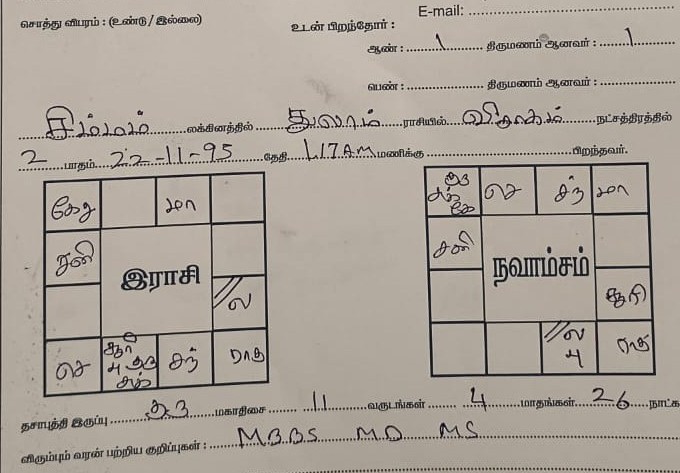 E-mail:
சொத்து விபரம் : (உண்டு / இல்லை)
உடன் பிறந்தோர் :
ஆண் : 1 திருமணம் ஆனவர் : 1
பெண் : திருமணம் ஆனவர் :
சிம்மம் லக்கினத்தில் துலாம் ராசியில் விசாகம் நட்சத்திரத்தில்
2 பாதம் 22-11-95 தேதி 1.17AM மணிக்கு பிறந்தவர்.
கேது மா
சனி
இராசி
ல
செ சூரி பு குரு சுக் சந் ராகு
குரு சுக் கே செ சந் மா
சனி
நவாம்சம்
சூரி
ல பு ராகு
தசாபுத்தி இருப்பு குரு மகாதிசை 11 வருடங்கள் 4 மாதங்கள் 26 நாட்க
விரும்பும் வரன் பற்றிய குறிப்புகள் : M.B.B.S M.D M.S